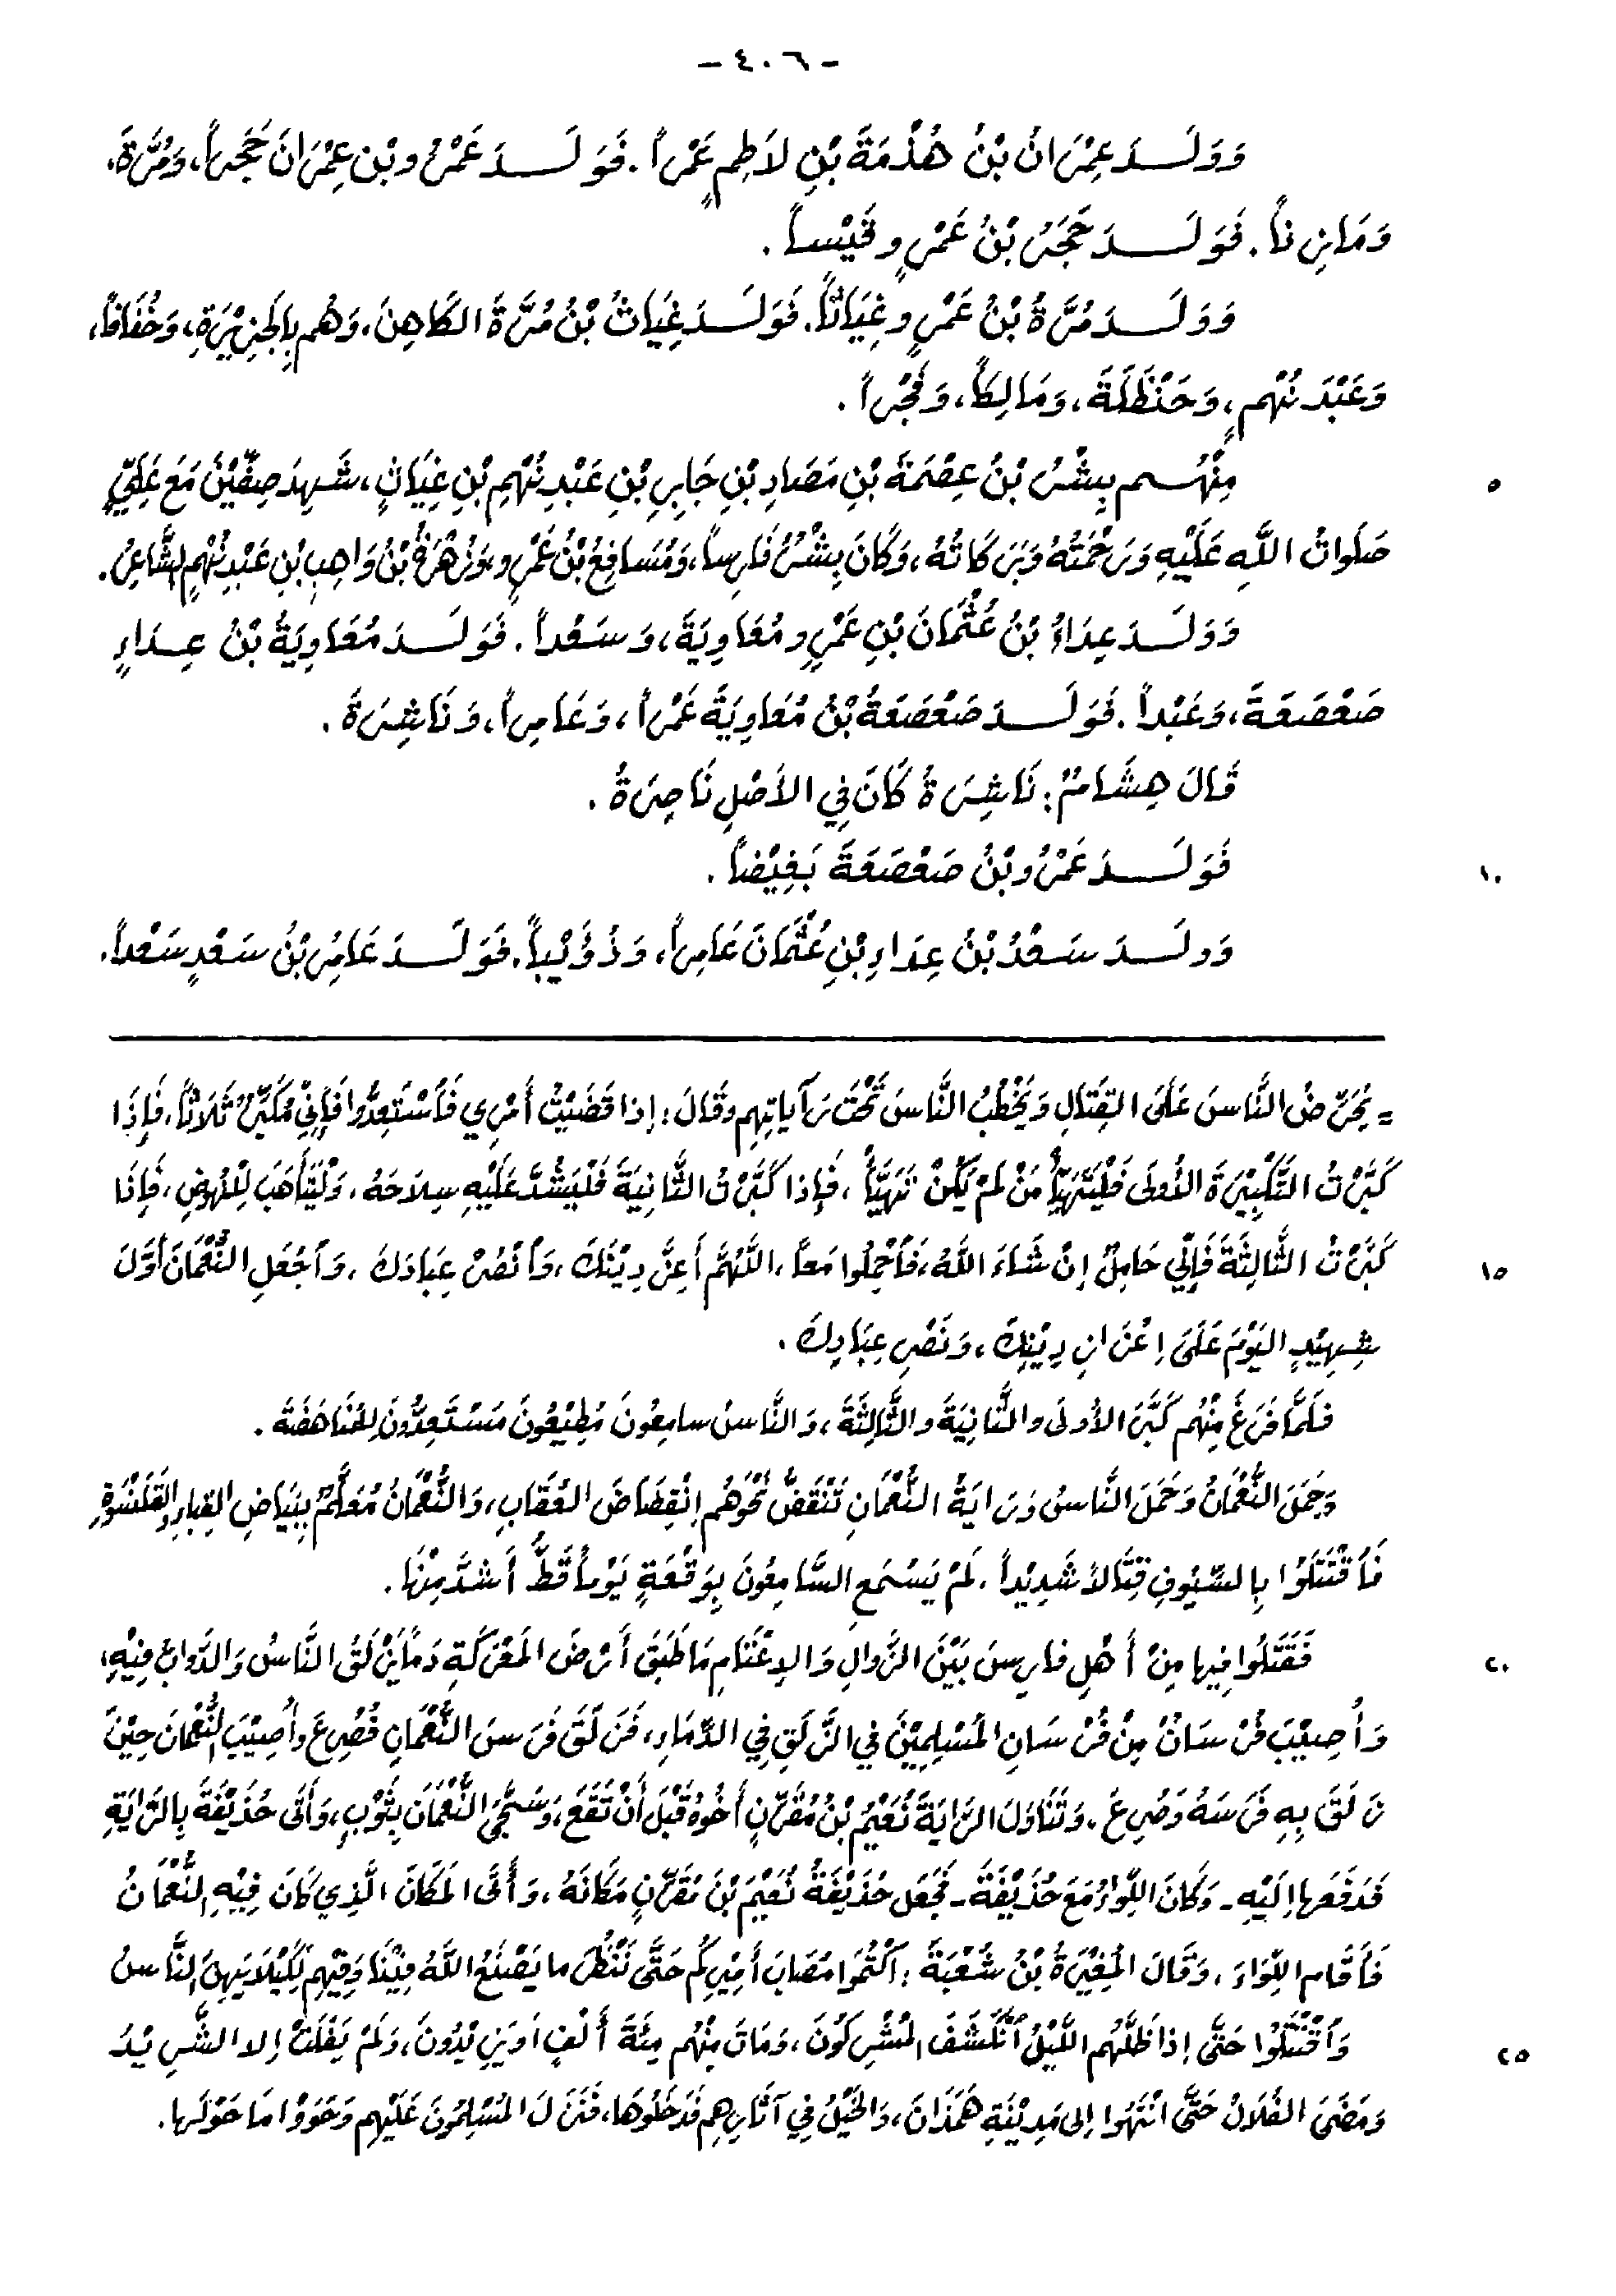 - ٤٠٦ -
وَوَلَـدَ عِمْرَانُ بْنُ هُذْمَةَ بْنِ لَاطِمٍ عَمْراً. فَوَلَـدَ عَمْرُو بْنِ عِمْرَانَ حَجَراً، وَمُرَّةَ،
وَمَازِناً. فَوَلَـدَ حَجَرُ بْنُ عَمْرٍو قَيْساً.
وَوَلَـدَ مُرَّةُ بْنُ عَمْرٍو غِيَاثاً. فَوَلَـدَ غِيَاثُ بْنُ مُرَّةَ الكَاهِنَ، وَهُم بِالجَزِيْرَةِ، وَخُفَافاً،
وَعَبْدَ نُهْمٍ، وَحَنْظَلَةَ، وَمَالِكاً، وَفَجْراً.
٥ مِنْهُـم بِشْرُ بْنُ عِصْمَةَ بْنِ مَصَادِ بْنِ جَابِرِ بْنِ عَبْدِ نُهْمِ بْنِ غِيَاثٍ، شَهِدَ صِفِّيْنَ مَعَ عَلِيٍّ
صَلَواتُ اللَّهِ عَلَيْهِ وَرَحْمَتُهُ وَبَرَكَاتُهُ، وَكَانَ بِشْرُ فَارِساً، وَمُسَافِعُ بْنُ عَمْرِو بْنِ وَاهِبِ بْنِ عَبْدِ نُهْمٍ الشَّاعِرُ.
وَوَلَـدَ عِدَاءُ بْنُ عُثْمَانَ بْنِ عَمْرٍو مُعَاوِيَةَ، وَسَعْداً. فَوَلَـدَ مُعَاوِيَةُ بْنُ عِـدَاءٍ
صَعْصَعَةَ، وَعَبْداً. فَوَلَـدَ صَعْصَعَةُ بْنُ مُعَاوِيَةَ عَمْراً، وَعَامِراً، وَنَاشِرَةَ.
قَالَ هِشَامٌ: نَاشِرَةُ كَانَ فِي الأَصْلِ نَاصِرَةُ.
١٠ فَوَلَـدَ عَمْرُو بْنُ صَعْصَعَةَ بَغِيْضاً.
وَولَـدَ سَعْدُ بْنُ عِدَاءِ بْنِ عُثْمَانَ عَامِراً، وَذُؤَيْباً. فَوَلَـدَ عَامِرُ بْنُ سَعْدٍ سَعْداً.
= يُحَرِّضُ النَّاسَ عَلَى القِتَالِ وَيَخْطُبُ النَّاسَ تَحْتَ رَآيَاتِهِم وَقَالَ: إذا قَضَيْتُ أَمْرِي فَاسْتَعِدُّوا فَإِنِّي مُكَبِّرٌ ثَلَاثاً، فَإِذَا
كَبَّرْتُ التَّكْبِيْرَةَ الأُولَى فَلْيَتَهَيَّأْ مَنْ لَمْ يَكُنْ تَهَيَّأَ، فَإذا كَبَّرْتُ الثَّانِيَةَ فَلْيَشُدَّ عَلَيْهِ سِلَاحَهُ، وَلْيَتَأَهَبَ لِلنُهوضِ، فَإِذَا
١٥ كَبَّرْتُ الثَّالِثَةَ فَإِنِّي حَامِلٌ إنْ شَاءَ اللَّهُ، فَاحْمِلُوا مَعاً، اللَّهُمَّ أَعِزَّ دِيْنَكَ، وَانْصُرْ عِبَادَكَ، وَاجْعَلِ النُّعْمَانَ أوَّلَ
شِهِيْدٍ اليَوْمَ عَلَى إعْزَازِ دِيْنِكَ، وَنَصْرِ عِبَادِكَ.
فَلَمَّا فَرَغَ مِنْهُم كَبَّرَ الأُولَى والثَّانِيَةَ والثَّالِثَةَ، وَالنَّاسُ سامِعُونَ مُطِيْعُونَ مَسْتَعِدُّونَ لِلمُنَاهَضَةِ.
وَحَمَلَ النُّعْمَانُ وَحَمَلَ النَّاسُ وَرَايَةُ النُّعْمَانِ تَنْقَضُّ نَحْوَهُم إنْقِضَاضَ العُقَابِ، وَالنُّعْمَانُ مُعَلَّمٌ بِبَيَاضِ القِبَاءِ وَالقَلَنْسُوَةِ
فَاقْتَتَلُوْا بِالسُّيُوفِ قِتَالاً شَدِيْداً، لَمْ يَسْمَعِ السَّامِعُونَ بِوَقْعَةٍ يَوْماً قَطُّ أَشَدَّ مِنْهَا.
٢٠ فَقَتَلُوا فِيها مِنْ أَهْلِ فارِسَ بَيْنَ الزَّوالِ وَالإِعْتَامِ مَا طَبَقَ أَرْضَ المَعْرَكَةِ دَمَاً يَزْلَقُ النَّاسُ وَالدَّوابُّ فِيْهِ،
وَأُصِيْبَ فُرْسَانٌ مِنْ فُرْسَانِ المُسْلِمِيْنَ فِي الزَّلَقِ فِي الدِّمَاءِ، فَزَلَقَ فَرَسَ النُّعْمَانِ فَصُرِعَ وأُصِيْبَ النُّعْمَانَ حِيْنَ
زَلَقَ بِهِ فَرَسَهُ وَصُرِعَ، وَتَنَاوَلَ الرَّايَةَ نُعَيْمُ بْنُ مُقَرِّنٍ أَخُوهُ قَبْلَ أَنْ تَقَعَ، وَسَجَّى النُّعْمَانَ بِثَوْبٍ، وَأَتَى حُذَيْفَةَ بِالرَّايَةِ
فَدَفَعَها إلَيْهِ - وَكَانَ اللِّوَاءُ مَعَ حُذَيْفَةَ - فَجَعَلَ حُذَيْفَةُ نُعَيْمَ بْنَ مُقَرِّنٍ مَكَانَهُ، وَأَتَى المَكَانَ الَّذِي كَانَ فِيْهِ النُّعْمَانُ
فَأَقَامَ اللِّوَاءَ، وَقَالَ المُغِيْرَةُ بْنُ شُعْبَةَ: اكْتُمُوا مَصَابَ أَمِيْرِكُم حَتَّى نَنْظُرَ ما يَصْنَعُ اللَّهُ فِيْنَا وَفِيْهِم لِكَيْلَا يَهِنَ النَّاسُ
٢٥ وَاقْتَتَلُوْا حَتَّى إذا ظَلَّهُم اللَّيْلُ انْكَشَفَ المُشْرِكُونَ، وَمَاتَ مِنْهُم مِئَةَ أَلْفٍ أوَيَزِيْدُونَ، وَلَمْ يَفْلَتْ إلا الشَّرِيْدُ
وَمَضَى الفَلَالُ حَتَّى انْتَهَوا إلى مَدِيْنَةِ هَمَذَانَ، وَالخَيْلُ فِي آثَارِهِم فَدَخَلُوهَا، فَنَزَلَ المُسْلِمُونَ عَلَيْهِم وَحَوَوْا مَا حَوْلَها.